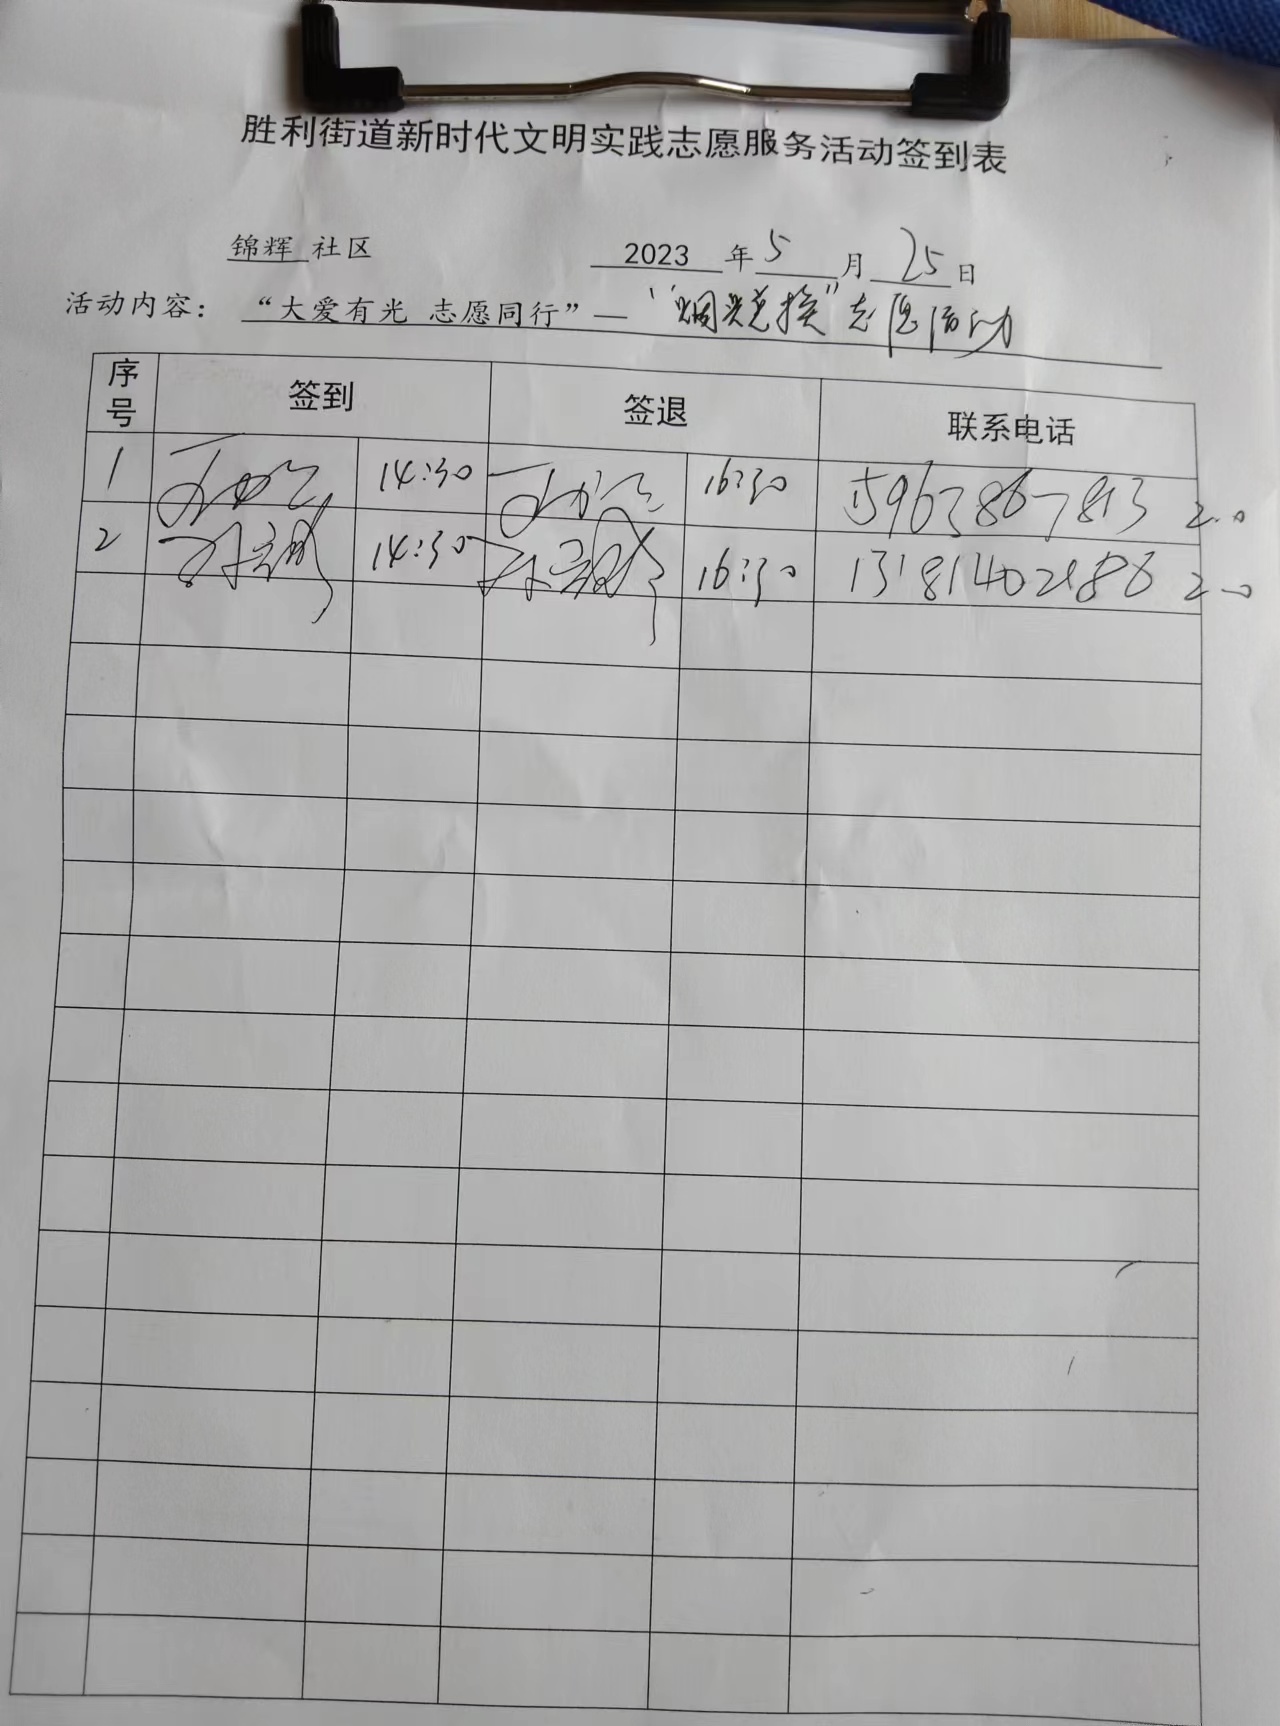 胜利街道新时代文明实践志愿服务活动签到表
锦辉 社区 2023 年 5 月 25 日
活动内容： “大爱有光 志愿同行”— “烟头兑换”志愿活动
序号 签到 签退 联系电话
1 14:30 16:30 15963867813 2.0
2 14:30 16:30 2.0